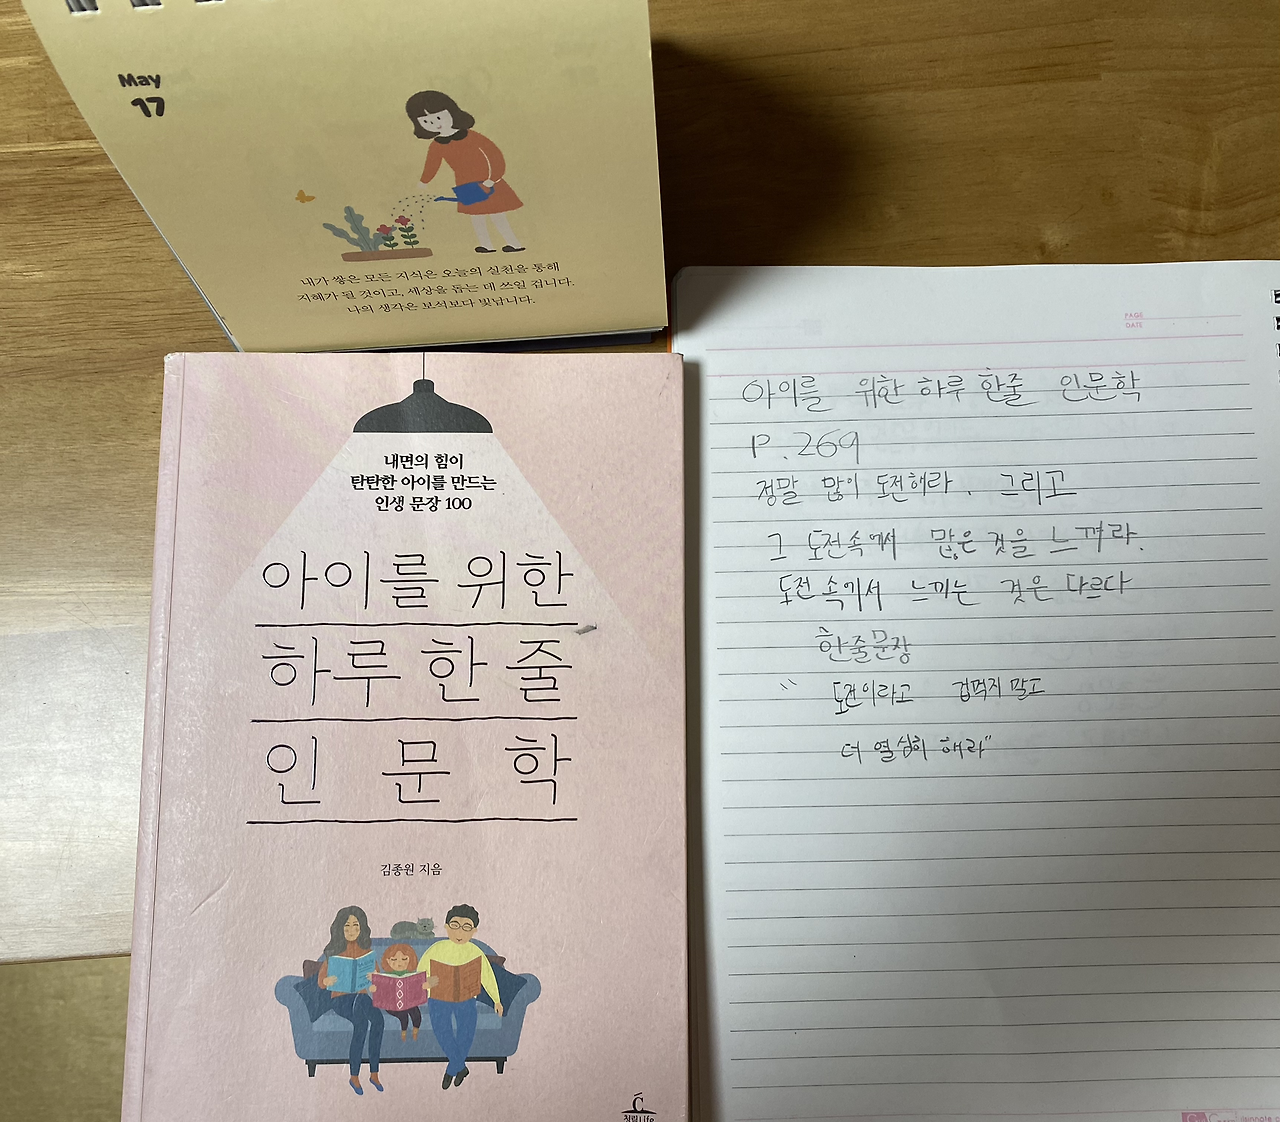 May
17
내가 쌓은 모든 지식은 오늘의 실천을 통해
지혜가 될 것이고, 세상을 돕는 데 쓰일 겁니다.
나의 생각은 보석보다 빛납니다.
내면의 힘이
탄탄한 아이를 만드는
인생 문장 100
아이를 위한
하루 한 줄
인 문 학
김종원 지음
청림Life
PAGE
DATE
아이를 위한 하루 한줄 인문학
P. 269
정말 많이 도전해라. 그리고
그 도전속에서 많은 것을 느껴라.
도전 속에서 느끼는 것은 다르다
한줄문장
" 도전이라고 겁먹지 말고
더 열심히 해라"